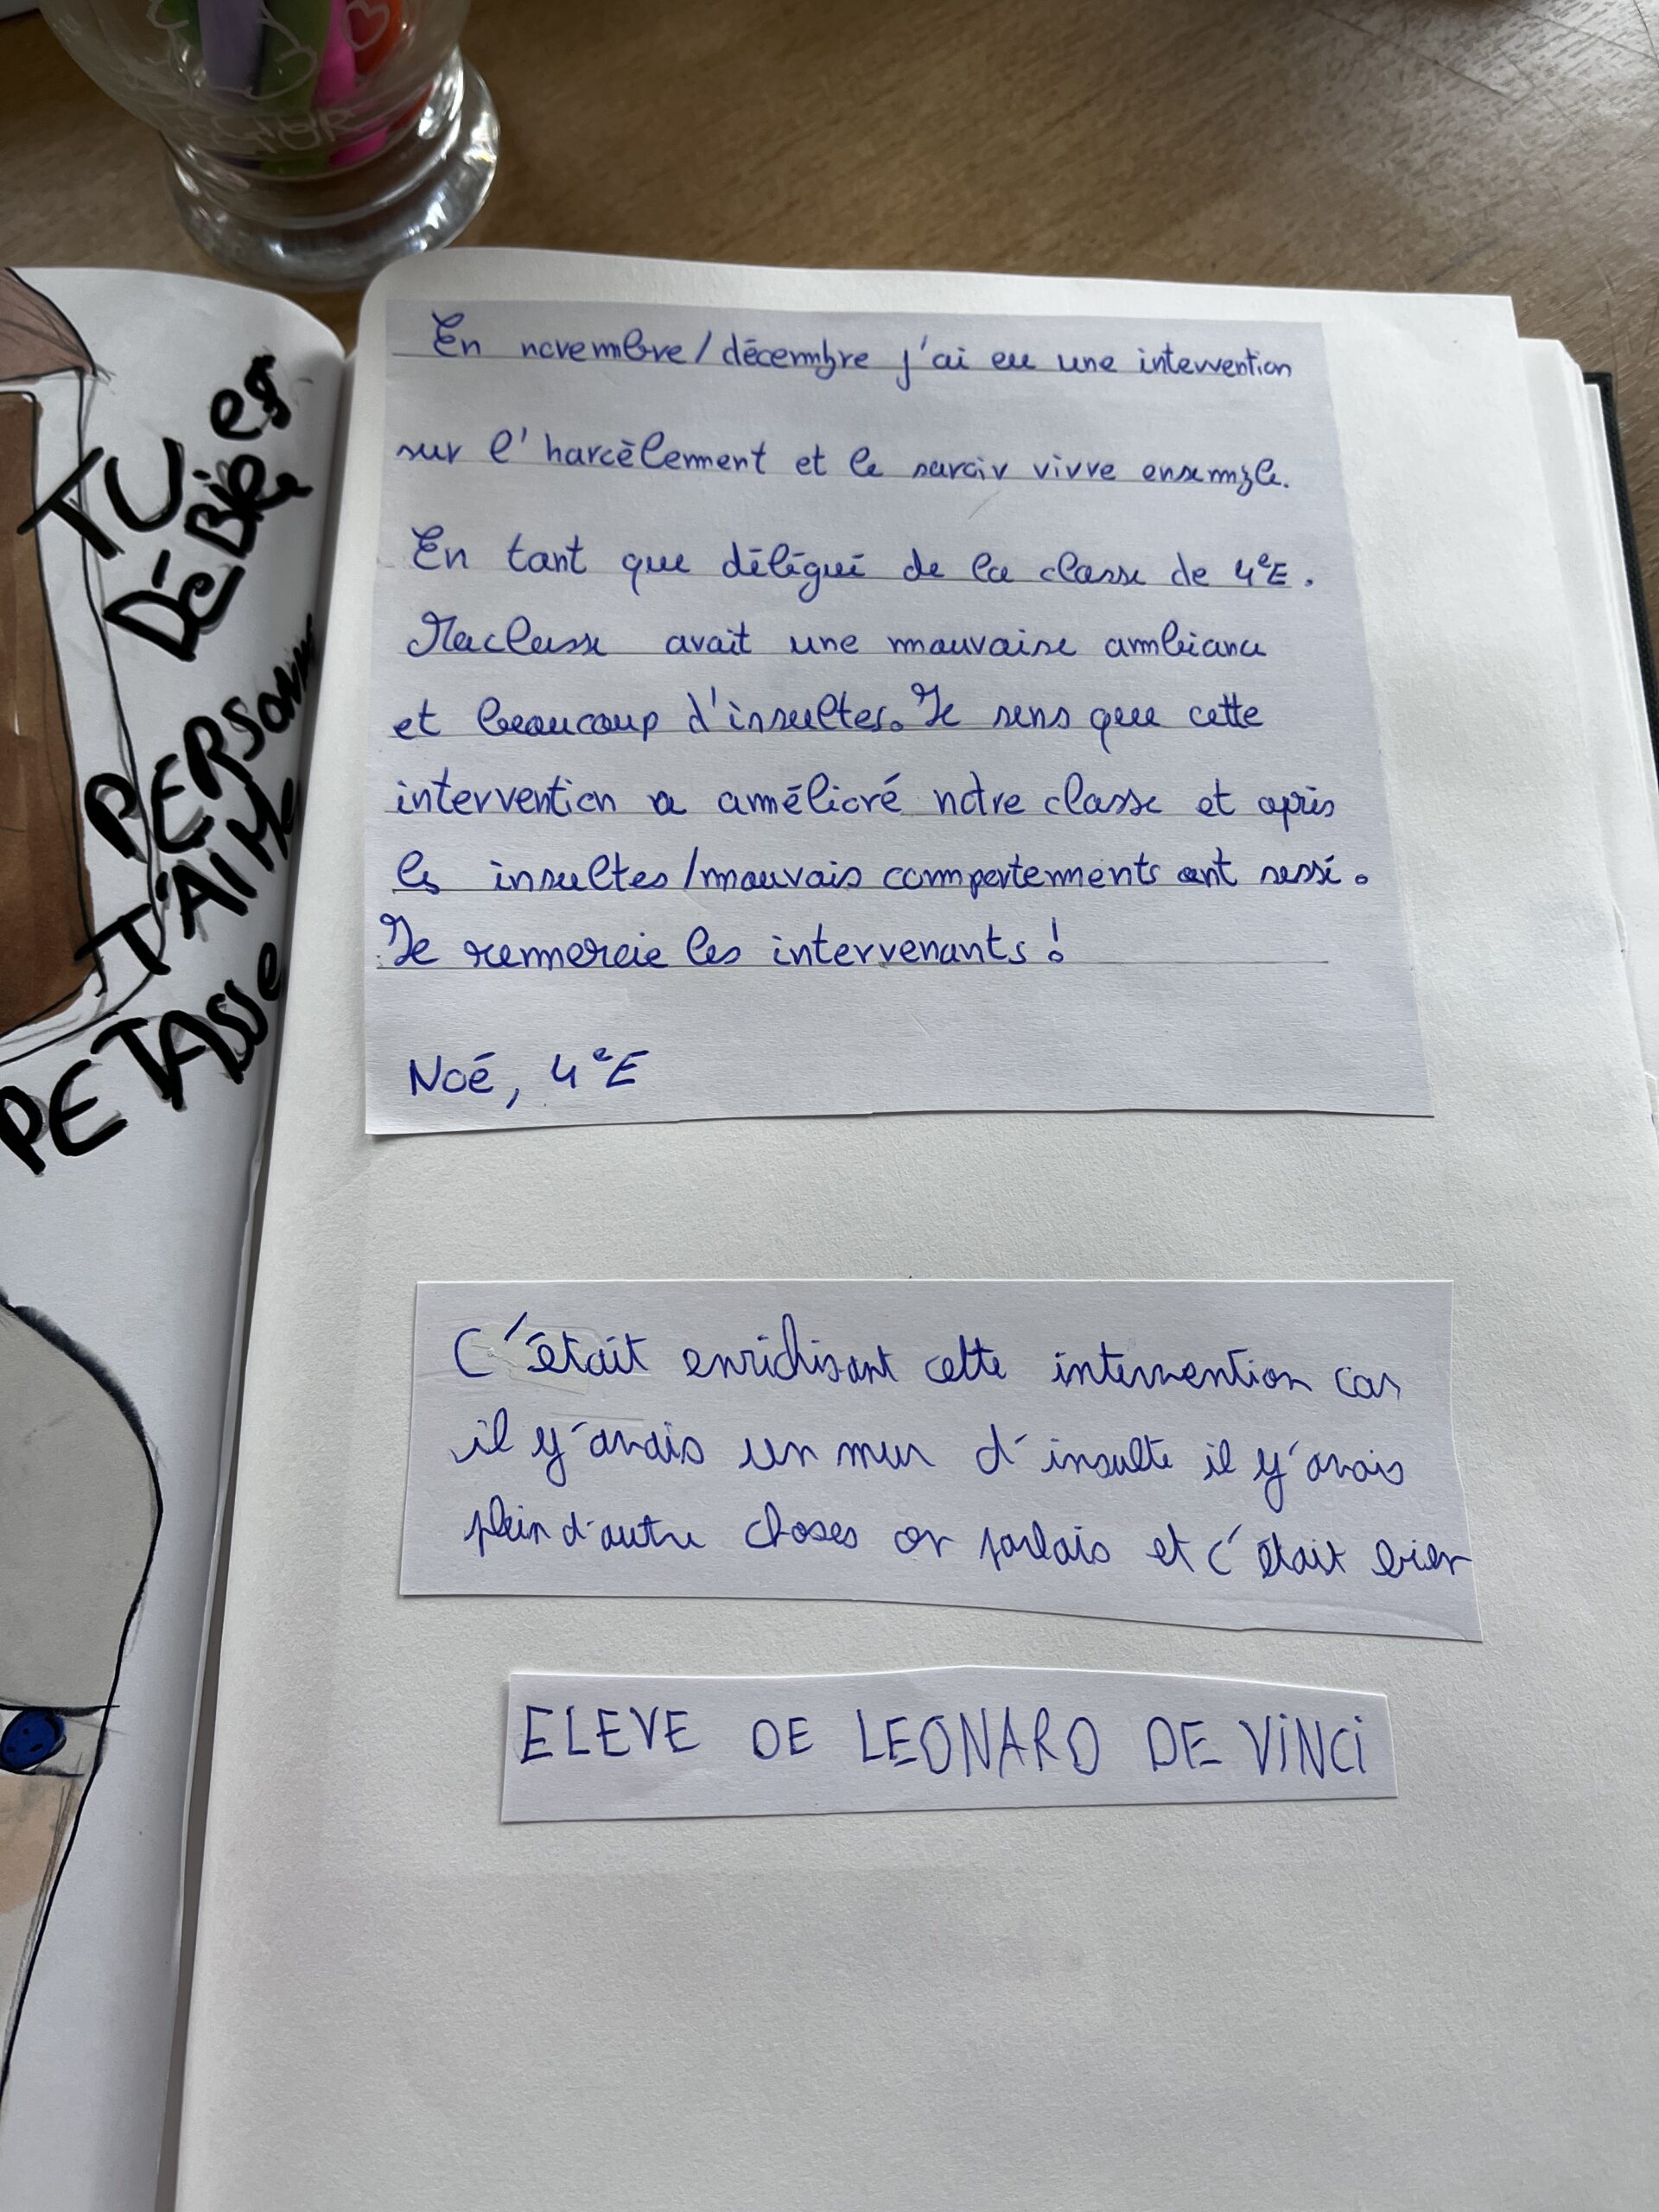 TU es
DÉBILE
PERSONNE
T'AIME
PETASSE
En novembre/décembre j'ai eu une intervention
sur l'harcèlement et le savoir vivre ensemble.
En tant que délégué de la classe de 4°E.
Ma classe avait une mauvaise ambiance
et beaucoup d'insultes. Je sens que cette
intervention a amélioré notre classe et après
les insultes/mauvais comportements ont sessé.
Je remmercie les intervenants !
Noé, 4°E
C'était enrichisant cette intervention car
il y'avais un mur d'insulte il y'avais
plein d'autre choses on parlais et c'était bien
ELEVE DE LEONARD DE VINCI